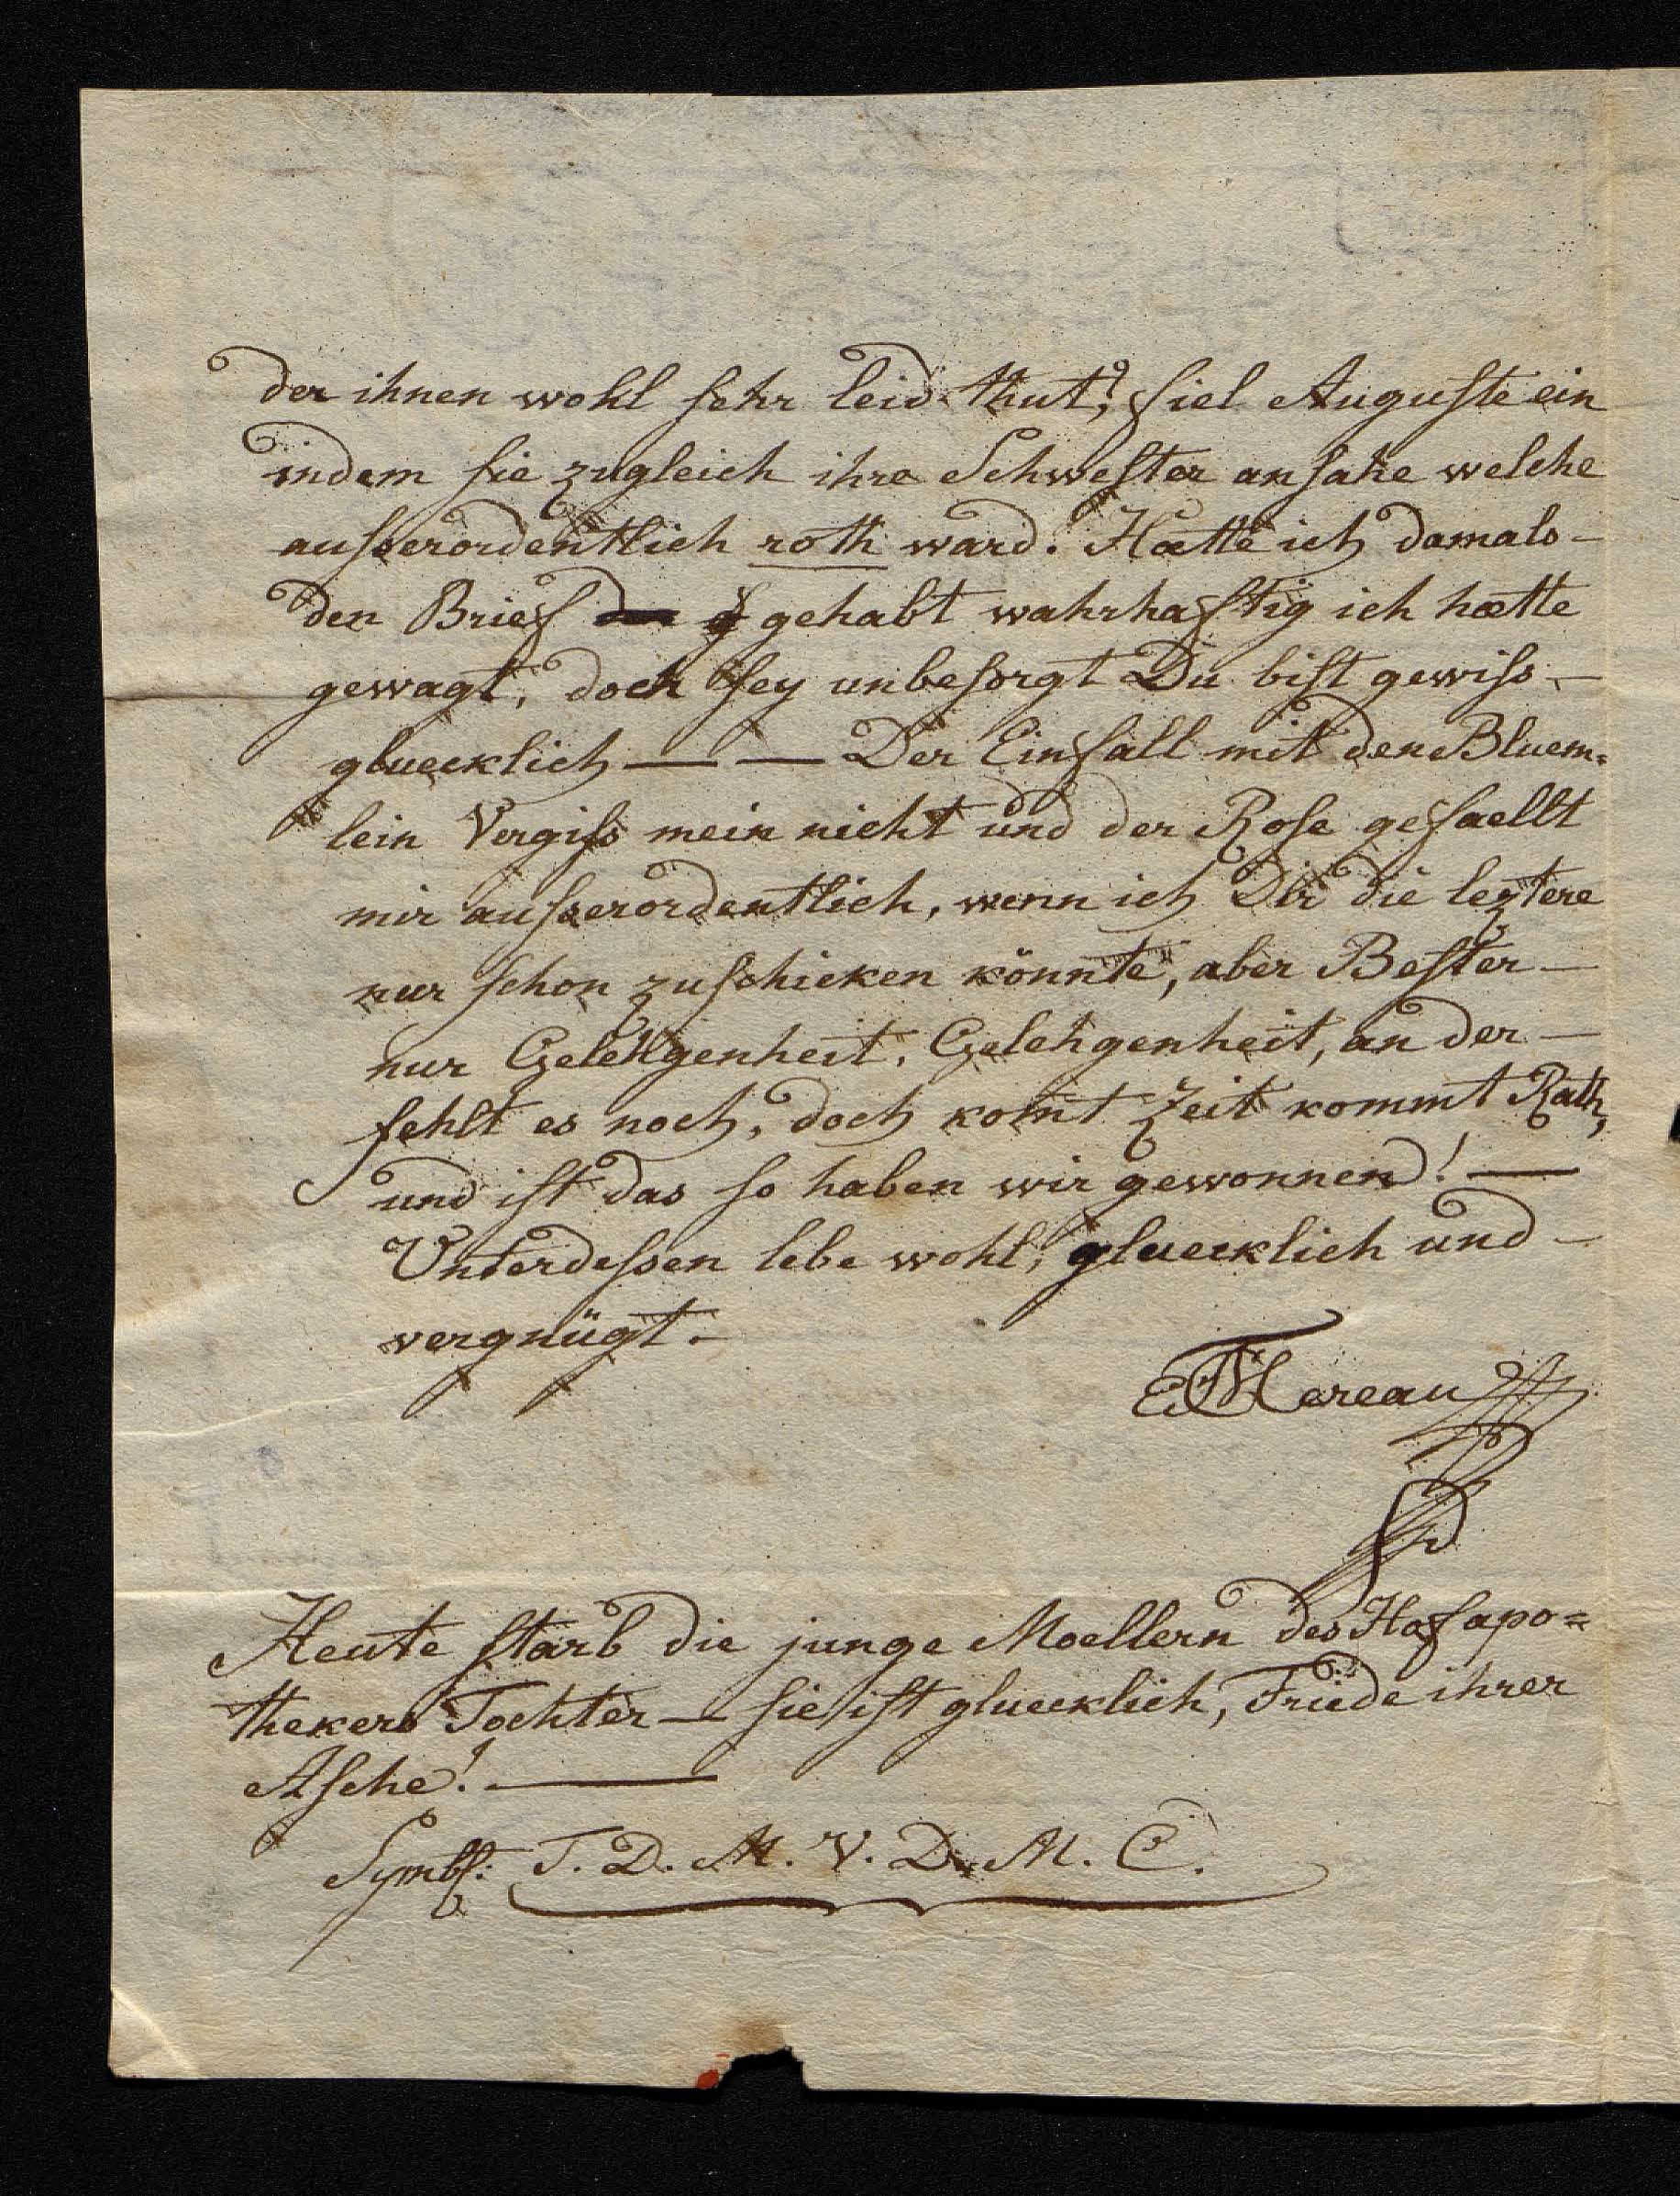 der ihnen wohl sehr leid thut?, fiel Auguste ein
indem sie zugleich ihre Schwester ansahe welche
ausserordentlich roth ward. Hætte ich damals –
den Brief gehabt wahrhaftig ich hætte
gewagt, doch sey unbesorgt Du bist gewiss –
gluecklich — — Der Einfall mit den Bluem=
lein Vergiss mein nicht und der Rose gefaellt
mir ausserordentlich, wenn ich Dir die leztere
nur schon zuschicken könnte, aber Bester –
nur Gelehgenheit, Gelehgenheit, an der –
fehlt es noch, doch komt Zeit kommt Rath,
und ist das so haben wir gewonnen! —
Unterdessen lebe wohl, gluecklich und –
vergnügt.
Mereau
Heute starb die junge Moellern des Hofapo=
thekers Tochter — sie ist gluecklich, Friede ihrer
Asche! —
Symb: T. D. M. V. D. M. C.